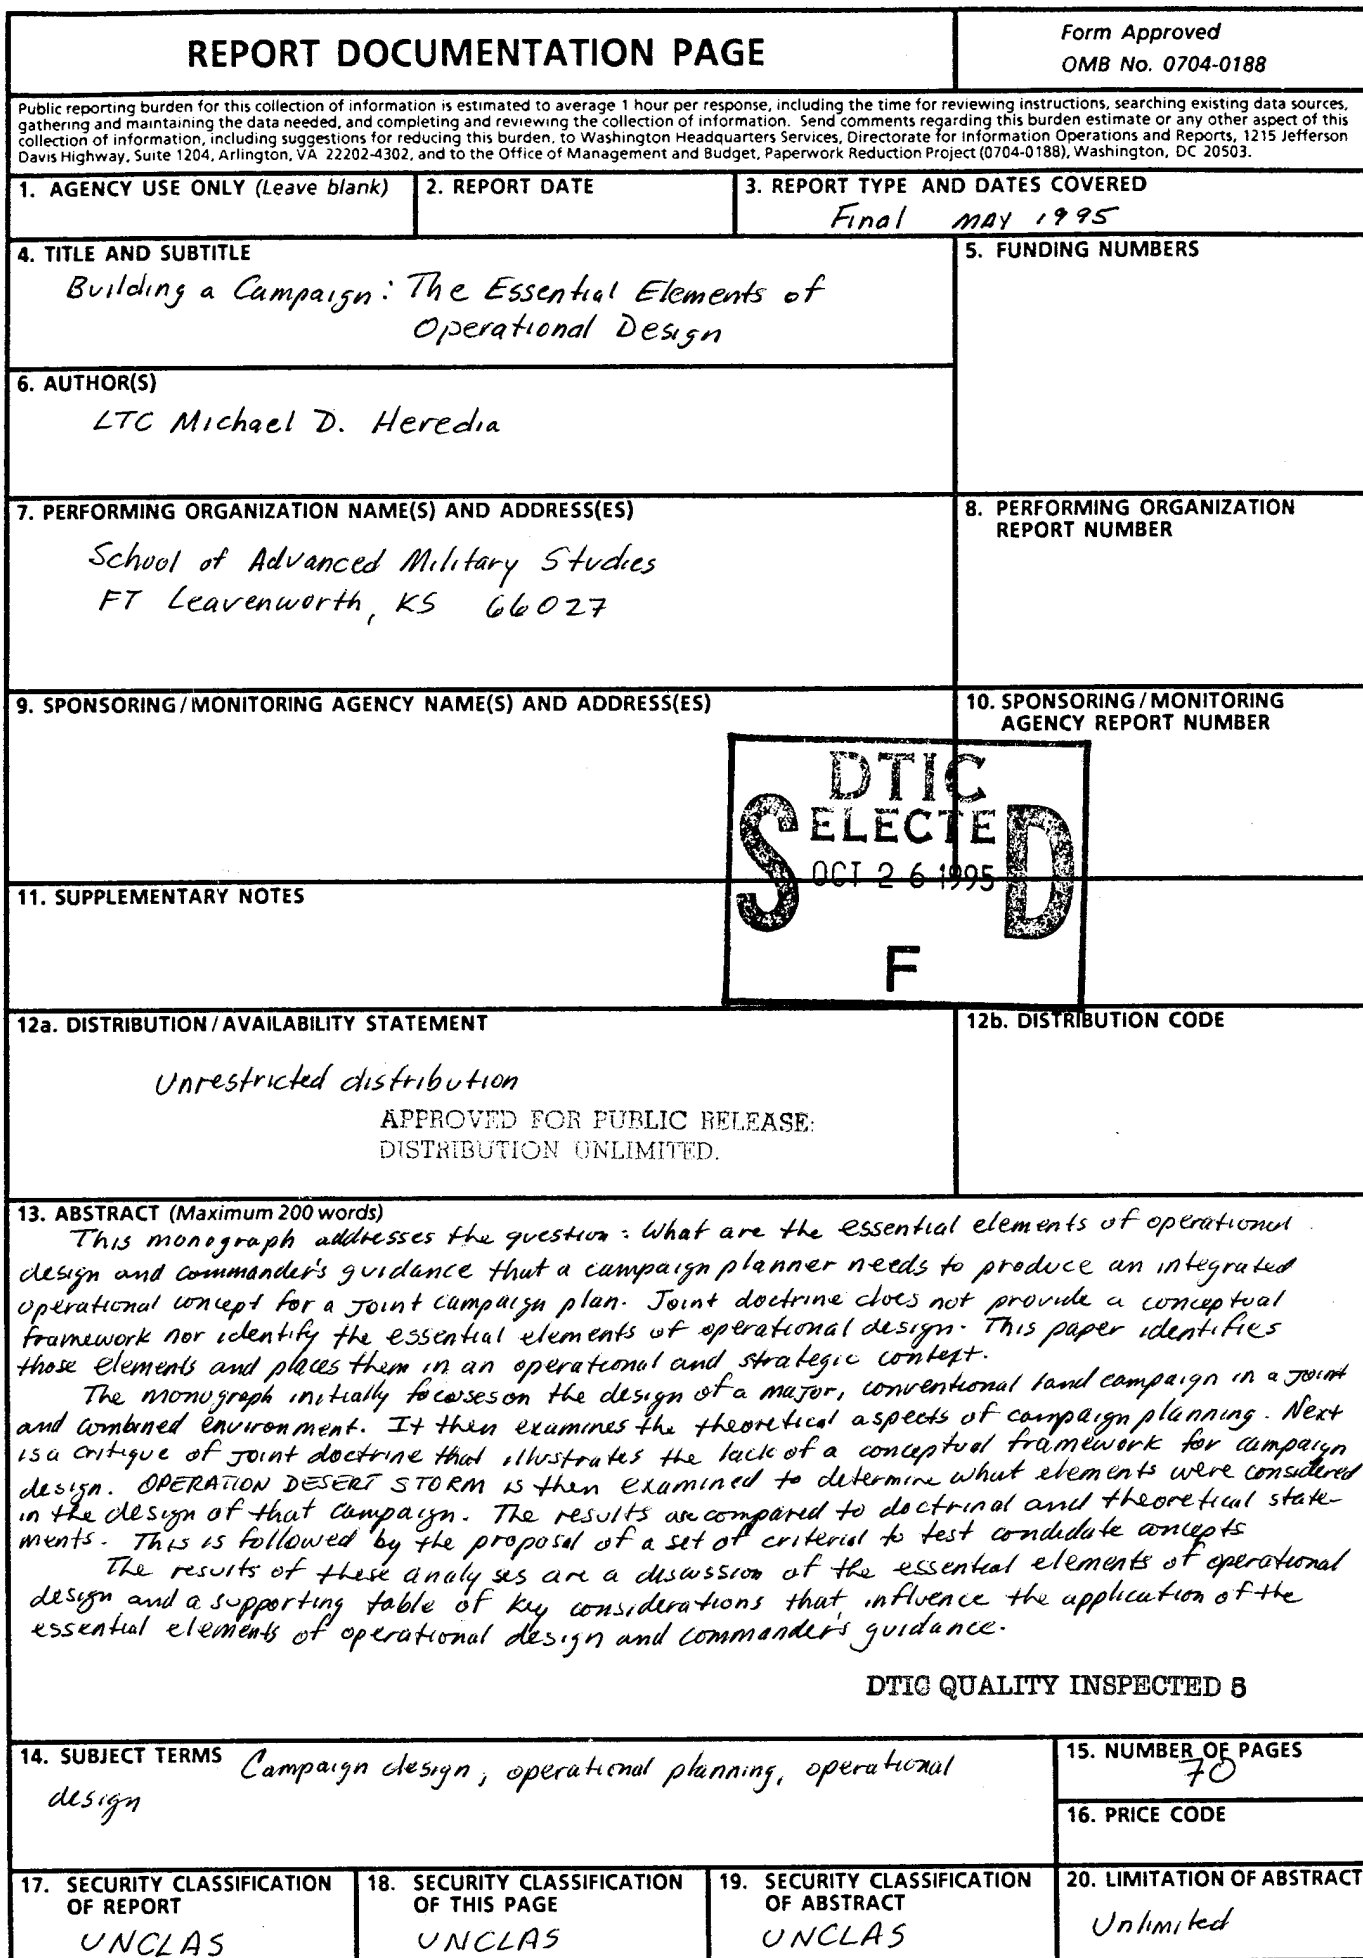 REPORT DOCUMENTATION PAGE
Form Approved
OMB No. 0704-0188
Public reporting burden for this collection of information is estimated to average 1 hour per response, including the time for reviewing instructions, searching existing data sources,
gathering and maintaining the data needed, and completing and reviewing the collection of information. Send comments regarding this burden estimate or any other aspect of this
collection of information, including suggestions for reducing this burden, to Washington Headquarters Services, Directorate for Information Operations and Reports, 1215 Jefferson
Davis Highway, Suite 1204, Arlington, VA 22202-4302, and to the Office of Management and Budget, Paperwork Reduction Project (0704-0188), Washington, DC 20503.
1. AGENCY USE ONLY (Leave blank)
2. REPORT DATE
3. REPORT TYPE AND DATES COVERED
Final MAY 1995
4. TITLE AND SUBTITLE
Building a Campaign: The Essential Elements of
Operational Design
5. FUNDING NUMBERS
6. AUTHOR(S)
LTC Michael D. Heredia
7. PERFORMING ORGANIZATION NAME(S) AND ADDRESS(ES)
School of Advanced Military Studies
FT Leavenworth, KS 66027
8. PERFORMING ORGANIZATION
REPORT NUMBER
9. SPONSORING/MONITORING AGENCY NAME(S) AND ADDRESS(ES)
10. SPONSORING/MONITORING
AGENCY REPORT NUMBER
DTIC
S ELECTE D
OCT 26 1995
F
11. SUPPLEMENTARY NOTES
12a. DISTRIBUTION/AVAILABILITY STATEMENT
Unrestricted distribution
APPROVED FOR PUBLIC RELEASE:
DISTRIBUTION UNLIMITED.
12b. DISTRIBUTION CODE
13. ABSTRACT (Maximum 200 words)
This monograph addresses the question: What are the essential elements of operational
design and commander's guidance that a campaign planner needs to produce an integrated
operational concept for a joint campaign plan. Joint doctrine does not provide a conceptual
framework nor identify the essential elements of operational design. This paper identifies
those elements and places them in an operational and strategic context.
The monograph initially focuses on the design of a major, conventional land campaign in a joint
and combined environment. It then examines the theoretical aspects of campaign planning. Next
is a critique of joint doctrine that illustrates the lack of a conceptual framework for campaign
design. OPERATION DESERT STORM is then examined to determine what elements were considered
in the design of that campaign. The results are compared to doctrinal and theoretical state-
ments. This is followed by the proposal of a set of criteria to test candidate concepts
The results of these analyses are a discussion of the essential elements of operational
design and a supporting table of key considerations that influence the application of the
essential elements of operational design and commander's guidance.
DTIC QUALITY INSPECTED 5
14. SUBJECT TERMS
Campaign design, operational planning, operational
design
15. NUMBER OF PAGES
70
16. PRICE CODE
17. SECURITY CLASSIFICATION
OF REPORT
UNCLAS
18. SECURITY CLASSIFICATION
OF THIS PAGE
UNCLAS
19. SECURITY CLASSIFICATION
OF ABSTRACT
UNCLAS
20. LIMITATION OF ABSTRACT
Unlimited